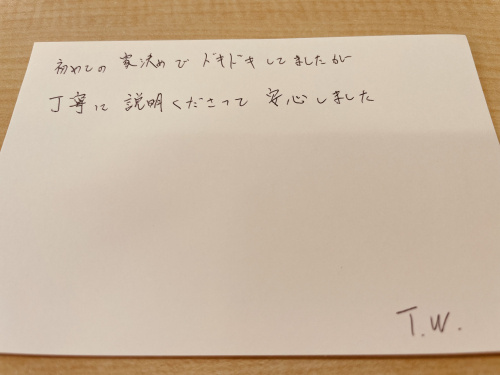 初めての 家決めで ドキドキしてましたが
丁寧に 説明くださって 安心しました
T.W.